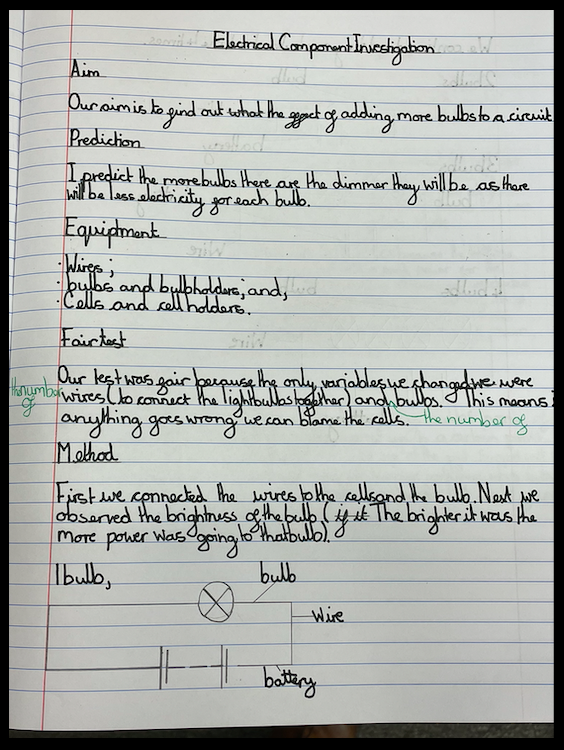 Electrical Component Investigation
Aim
Our aim is to find out what the effect of adding more bulbs to a circuit
Prediction
I predict the more bulbs there are the dimmer they will be as there
will be less electricity for each bulb.
Equiptment
· Wires;
· bulbs and bulbholders; and,
· Cells and cell holders.
Fair test
Our test was fair because the only variables we changed we were
the number of
wires (to connect the lightbulbs together) and bulbs. This means i
anything goes wrong we can blame the cells. the number of
Method
First we connected the wires to the cells and the bulb. Next we
observed the brightness of the bulb (if it The brighter it was the
more power was going to that bulb).
1 bulb,
bulb
Wire
battery